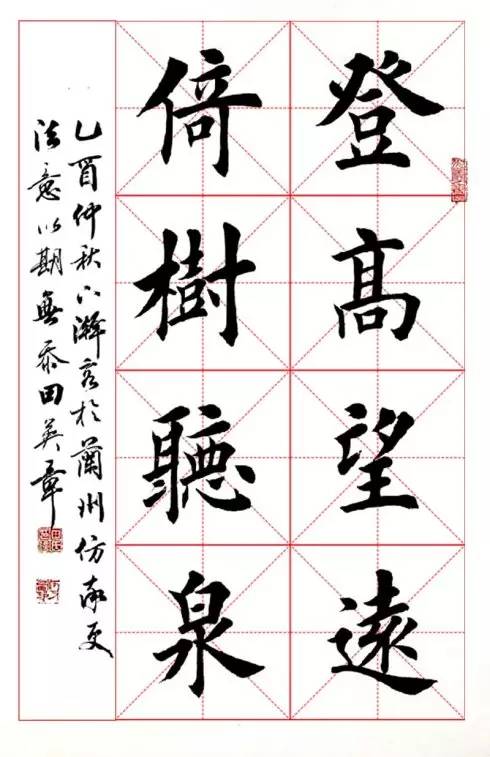 登高望遠
倚樹聽泉
乙酉仲秋下澣客於蘭州仿率更
法意以期無忝田英章